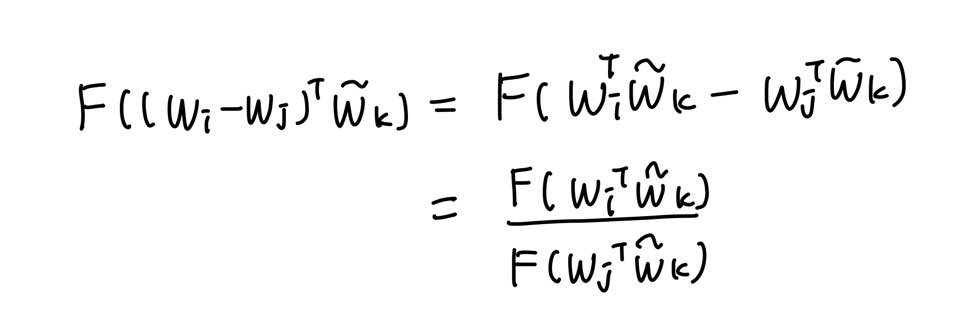 F((w_i-w_j)^T w̃_k) = F(w_i^T w̃_k - w_j^T w̃_k)
= F(w_i^T w̃_k) / F(w_j^T w̃_k)